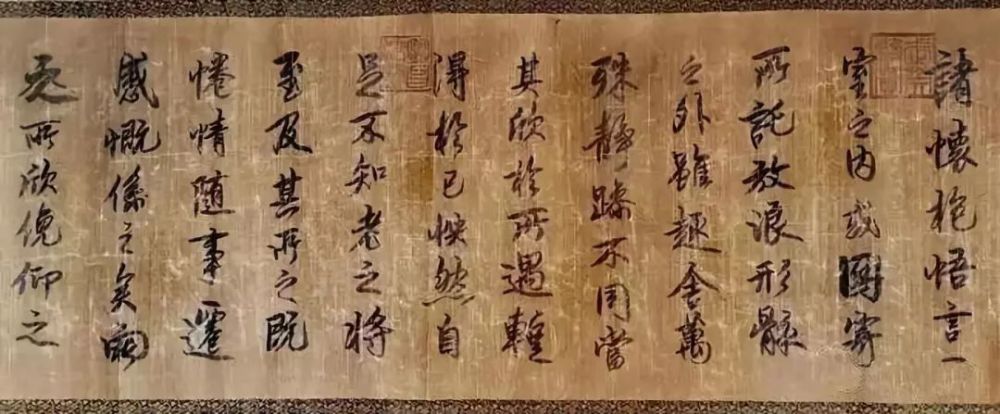 諸懷抱悟言一
室之内或因寄
所託放浪形骸
之外雖趣舍萬
殊靜躁不同當
其欣於所遇暫
得於己怏然自
足不知老之將
至及其所之既
惓情隨事遷
感慨係之矣向
之所欣俛仰之